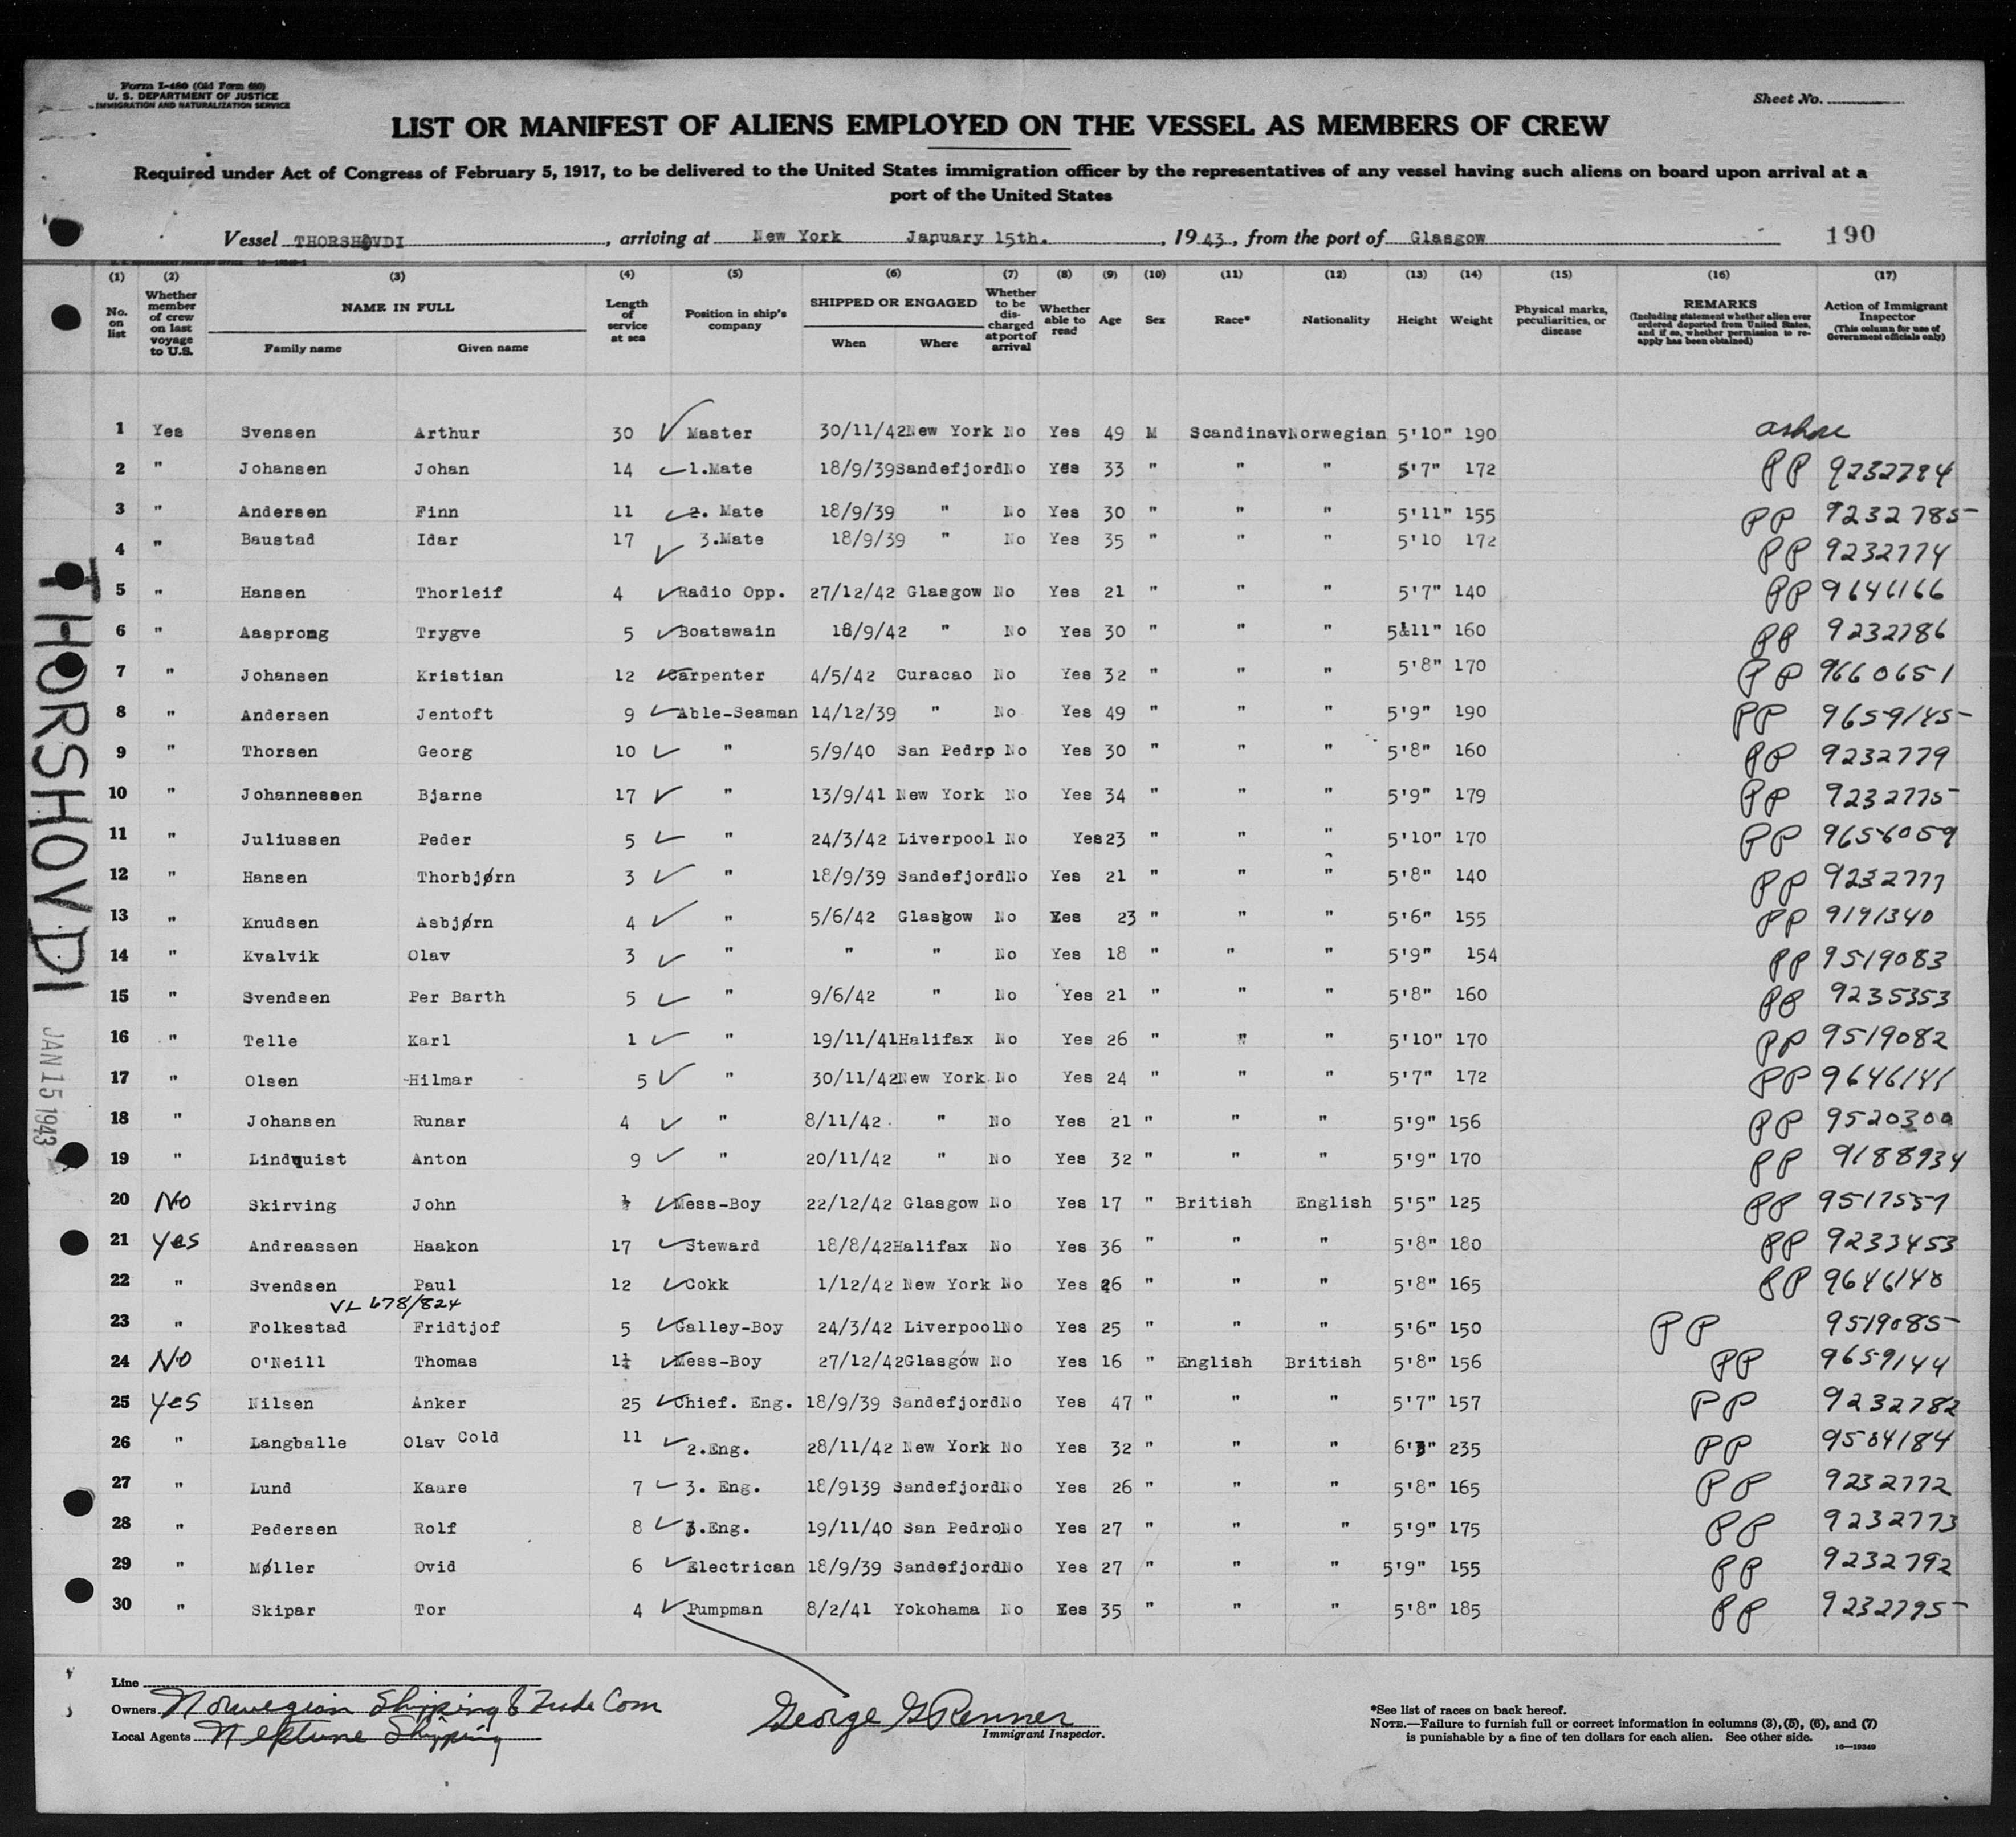 Form I-480 (Old Form 680)
U. S. DEPARTMENT OF JUSTICE
IMMIGRATION AND NATURALIZATION SERVICE
Sheet No.
LIST OR MANIFEST OF ALIENS EMPLOYED ON THE VESSEL AS MEMBERS OF CREW
Required under Act of Congress of February 5, 1917, to be delivered to the United States immigration officer by the representatives of any vessel having such aliens on board upon arrival at a
port of the United States
Vessel THORSHOVDI, arriving at New York January 15th., 1943, from the port of Glasgow 190
(1) (2) (3) (4) (5) (6) (7) (8) (9) (10) (11) (12) (13) (14) (15) (16) (17)
No. on list Whether member of crew on last voyage to U.S. NAME IN FULL Family name Given name Length of service at sea Position in ship's company SHIPPED OR ENGAGED When Where Whether to be discharged at port of arrival Whether able to read Age Sex Race* Nationality Height Weight Physical marks, peculiarities, or disease REMARKS (Including statement whether alien ever ordered deported from United States, and if so, whether permission to reapply has been obtained) Action of Immigrant Inspector (This column for use of Government officials only)
1 Yes Svensen Arthur 30 Master 30/11/42 New York No Yes 49 M Scandinav Norwegian 5'10" 190 ashore
2 " Johansen Johan 14 1.Mate 18/9/39 Sandefjord No Yes 33 " " " 5'7" 172 PP 9232784
3 " Andersen Finn 11 2. Mate 18/9/39 " No Yes 30 " " " 5'11" 155 PP 9232785
4 " Baustad Idar 17 3.Mate 18/9/39 " No Yes 35 " " " 5'10 172 PP 9232774
5 " Hansen Thorleif 4 Radio Opp. 27/12/42 Glasgow No Yes 21 " " " 5'7" 140 PP 9646166
6 " Aasprong Trygve 5 Boatswain 18/9/42 " No Yes 30 " " " 5'11" 160 PP 9232786
7 " Johansen Kristian 12 Carpenter 4/5/42 Curacao No Yes 32 " " " 5'8" 170 PP 9660651
8 " Andersen Jentoft 9 Able-Seaman 14/12/39 " No Yes 49 " " " 5'9" 190 PP 9659145
9 " Thorsen Georg 10 " 5/9/40 San Pedro No Yes 30 " " " 5'8" 160 PP 9232779
10 " Johannessen Bjarne 17 " 13/9/41 New York No Yes 34 " " " 5'9" 179 PP 9232775
11 " Juliussen Peder 5 " 24/3/42 Liverpool No Yes 23 " " " 5'10" 170 PP 9656059
12 " Hansen Thorbjørn 3 " 18/9/39 Sandefjord No Yes 21 " " " 5'8" 140 PP 9232777
13 " Knudsen Asbjørn 4 " 5/6/42 Glasgow No Yes 23 " " " 5'6" 155 PP 9191340
14 " Kvalvik Olav 3 " " " No Yes 18 " " " 5'9" 154 PP 9519083
15 " Svendsen Per Barth 5 " 9/6/42 " No Yes 21 " " " 5'8" 160 PP 9235353
16 " Telle Karl 1 " 19/11/41 Halifax No Yes 26 " " " 5'10" 170 PP 9519082
17 " Olsen Hilmar 5 " 30/11/42 New York No Yes 24 " " " 5'7" 172 PP 9646141
18 " Johansen Runar 4 " 8/11/42 " No Yes 21 " " " 5'9" 156 PP 9520300
19 " Lindquist Anton 9 " 20/11/42 " No Yes 32 " " " 5'9" 170 PP 9188934
20 No Skirving John Mess-Boy 22/12/42 Glasgow No Yes 17 " British English 5'5" 125 PP 9517557
21 Yes Andreassen Haakon 17 Steward 18/8/42 Halifax No Yes 36 " " " 5'8" 180 PP 9233453
22 " Svendsen Paul 12 Cokk 1/12/42 New York No Yes 26 " " " 5'8" 165 PP 9646140
VL 678/824
23 " Folkestad Fridtjof 5 Galley-Boy 24/3/42 Liverpool No Yes 25 " " " 5'6" 150 PP 9519085
24 No O'Neill Thomas 1¼ Mess-Boy 27/12/42 Glasgow No Yes 16 " English British 5'8" 156 PP 9659144
25 Yes Nilsen Anker 25 Chief. Eng. 18/9/39 Sandefjord No Yes 47 " " " 5'7" 157 PP 9232782
26 " Langballe Olav Cold 11 2.Eng. 28/11/42 New York No Yes 32 " " " 6'3" 235 PP 9504184
27 " Lund Kaare 7 3. Eng. 18/9139 Sandefjord No Yes 26 " " " 5'8" 165 PP 9232772
28 " Pedersen Rolf 8 3.Eng. 19/11/40 San Pedro No Yes 27 " " " 5'9" 175 PP 9232773
29 " Møller Ovid 6 Electrican 18/9/39 Sandefjord No Yes 27 " " " 5'9" 155 PP 9232792
30 " Skipar Tor 4 Pumpman 8/2/41 Yokohama No Yes 35 " " " 5'8" 185 PP 9232795
THORSHOVDI
JAN 15 1943
Line
Owners Norwegian Shipping & Trade Com
Local Agents Neptune Shipping
George G Renner
Immigrant Inspector.
*See list of races on back hereof.
NOTE.—Failure to furnish full or correct information in columns (3), (5), (6), and (7)
is punishable by a fine of ten dollars for each alien. See other side.
16—19349